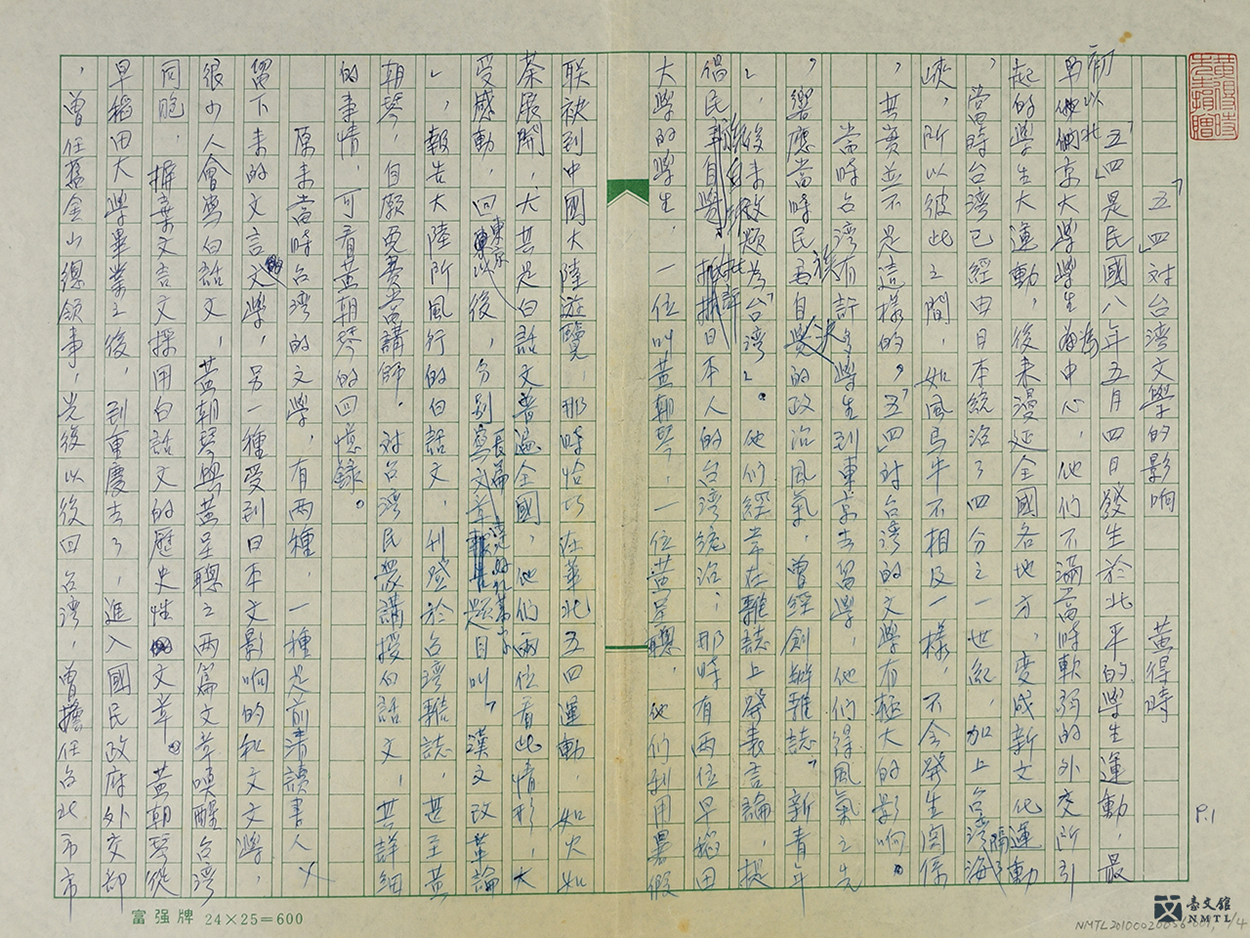 「五四」对台湾文學的影响　　黃得時
五四是民國八年五月四日發生於北平的學生運動，最
初以「北京大學學生為中心，他們不滿當時軟弱的外交所引
起的學生大運動，後来漫延全國各地方，变成新文化運動
，當時台湾已經由日本統治了四分之一世紀，加上台湾海
峽，所以彼此之間，如風马牛不相及一樣，不会發生関係
，其實並不是這樣的，「五四」对台湾的文學有極大的影响。
當時台湾有許多學生到東京去留學，他們得風氣之先
，響應當時民族自决的政治風氣，曾經創辦雜誌「新青年
」，後来改題為「台湾」。他們經常在雜誌上發表言論，提
倡民族自决，批評日本人的台湾統治；那時有两位早稻田
大學的學生，一位叫黃朝琴，一位黃呈聰，他們利用暑假
联袂到中國大陸遊覽，那時恰巧在華北五四運動，如火如
荼展開，尤其是白話文普遍全國，他們兩位看此情形，大
受感動，回東京以後，分别寫長篇文章題目叫「漢文改革論
」，報告大陸所風行的白話文，刊登於台湾雜誌，甚至黃
朝琴，自願免费當講師，对台湾民眾講授白話文，其詳細
的事情，可看黃朝琴的回憶録。
原来當時台湾的文學，有两種，一種是前清讀書人
留下来的文言文學，另一種受到日本文影响的和文文學，
很少人會寫白話文，黃朝琴與黃呈聰之两篇文章喚醒台湾
同胞，摒棄文言文採用白話文的歷史性文章。黃朝琴從
早稻田大學畢業之後，到重慶去了，進入國民政府外交部
，曾任舊金山總領事，光復以後回台湾，曾擔任台北市市
P.1
黃得時先生捐贈
富强牌 24×25=600
臺文館
NMTL